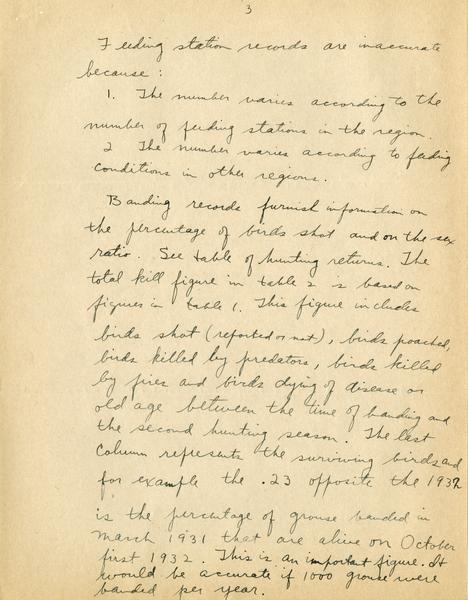 3
Feeding station records are inaccurate
because:
1. The number varies according to the
number of feeding stations in the region.
2 The number varies according to feeding
conditions in other regions.
Banding records furnish information on
the percentage of birds shot and on the sex
ratio. See table of hunting returns. The
total kill figure in table 2 is based on
figures in table 1. This figure includes
birds shot (reported or not), birds poached,
birds killed by predators, birds killed
by fires and birds dying of disease or
old age between the time of banding and
the second hunting season. The last
column represents the surviving birds and
for example the .23 opposite the 1932
is the percentage of grouse banded in
March 1931 that are alive on October
first 1932. This is an important figure. It
would be accurate if 1000 grouse were
banded per year.